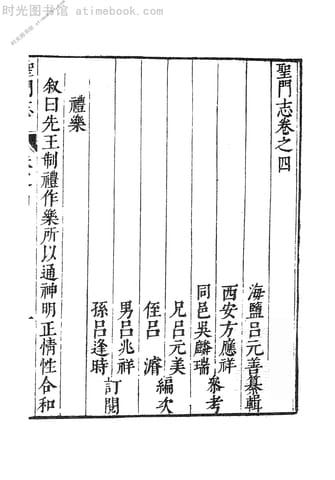 时光图书馆 - atimebook.com
聖門志卷之四
海鹽吕元善纂輯
西安方應祥
同邑吳麟瑞
參考
兄吕元美
侄吕濬
編次
男吕兆祥
孫吕逢時
訂閱
禮樂
叙曰先王制禮作樂所以通神明正情性合和
聖門志
时光图书馆 - atimebook.com